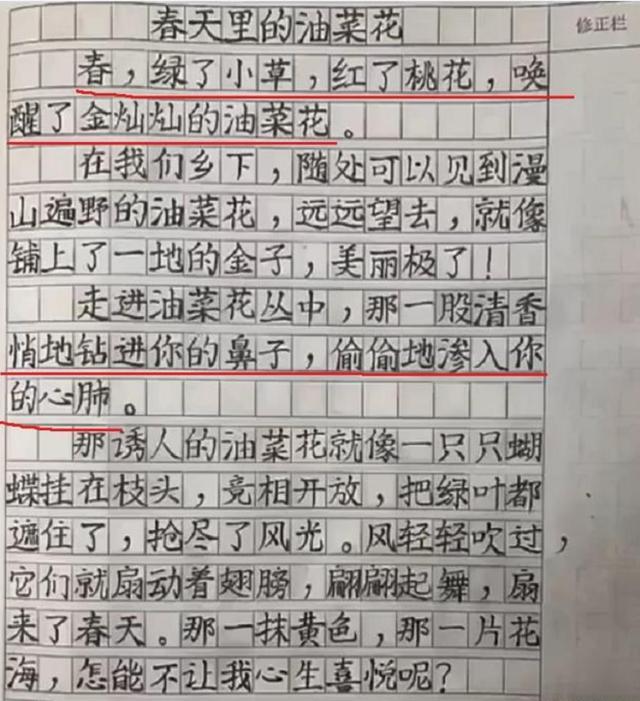 春天里的油菜花
修正栏
春，绿了小草，红了桃花，唤
醒了金灿灿的油菜花。
在我们乡下，随处可以见到漫
山遍野的油菜花，远远望去，就像
铺上了一地的金子，美丽极了！
走进油菜花丛中，那一股清香
悄地钻进你的鼻子，偷偷地渗入你
的心肺。
那诱人的油菜花就像一只只蝴
蝶挂在枝头，竞相开放，把绿叶都
遮住了，抢尽了风光。风轻轻吹过，
它们就扇动着翅膀，翩翩起舞，扇
来了春天。那一抹黄色，那一片花
海，怎能不让我心生喜悦呢？